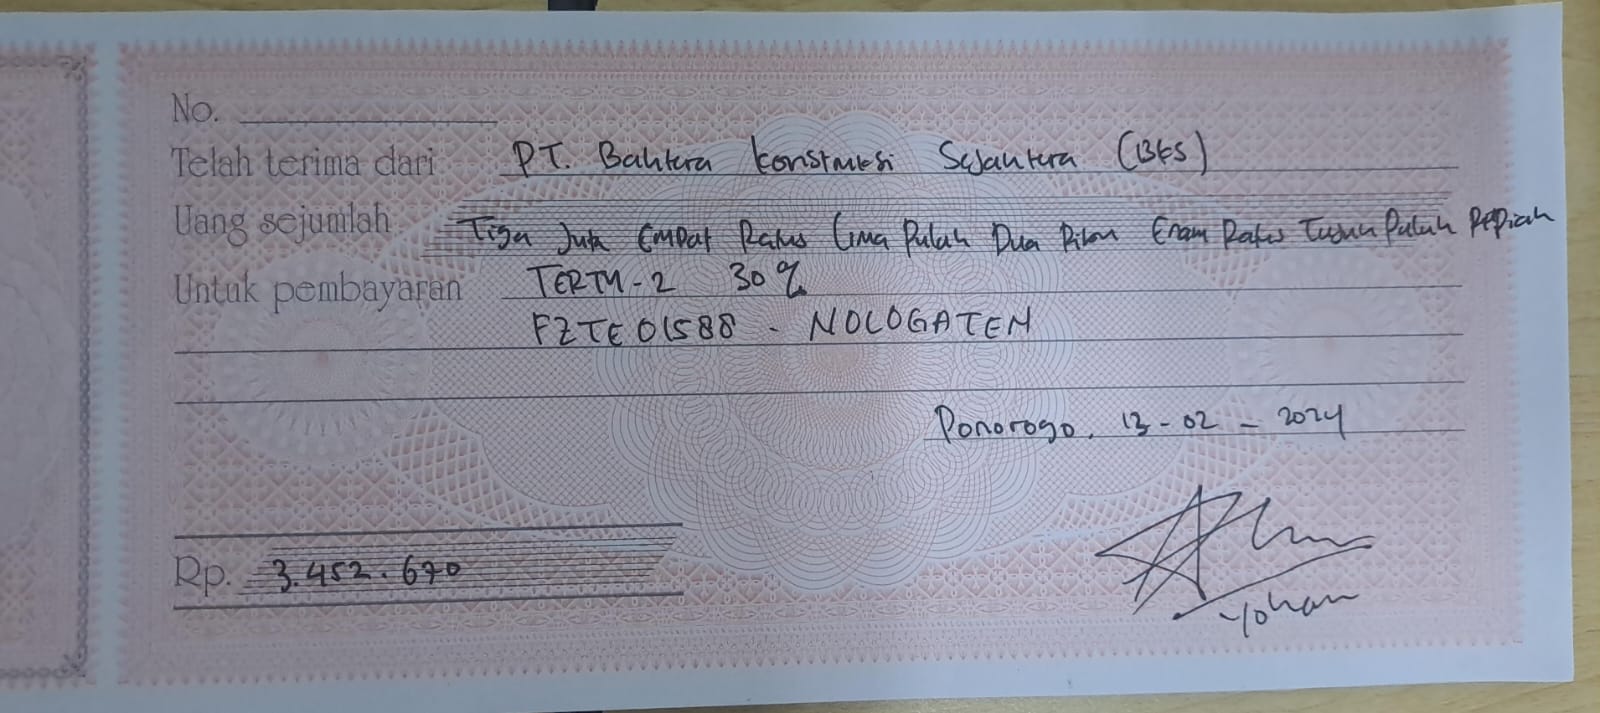 No.
Telah terima dari PT. Bahtera Konstruksi Sejahtera (BKS)
Uang sejumlah Tiga Juta Empat Ratus Lima Puluh Dua Ribu Enam Ratus Tujuh Puluh Rupiah
Untuk pembayaran TERM-2 30%
FZTE01588 - NOLOGATEN
Ponorogo, 13-02-2024
Rp. 3.452.670
Yohan